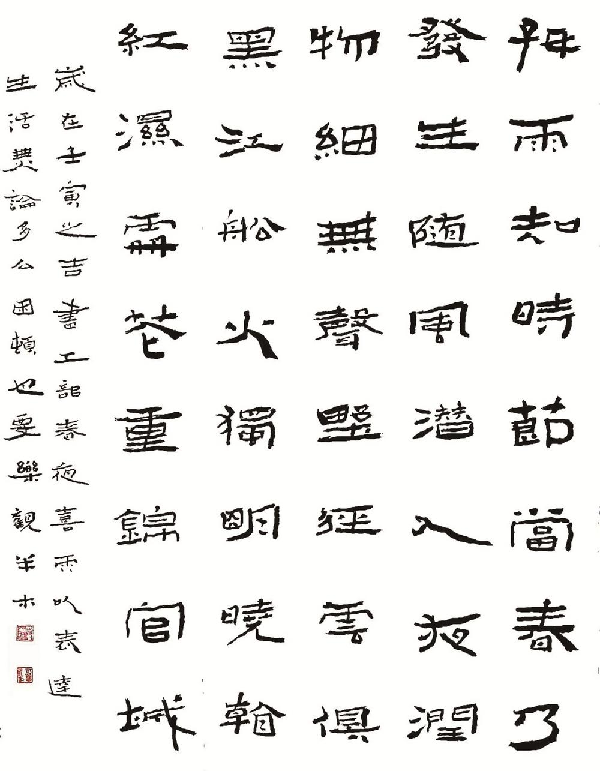 好雨知時節當春乃
發生随風潜入夜潤
物細無聲野徑雲俱
黑江船火獨明曉看
紅濕處花重錦官城
歲在壬寅之吉書工部春夜喜雨以表達
生活無論多么困頓也要樂觀半木